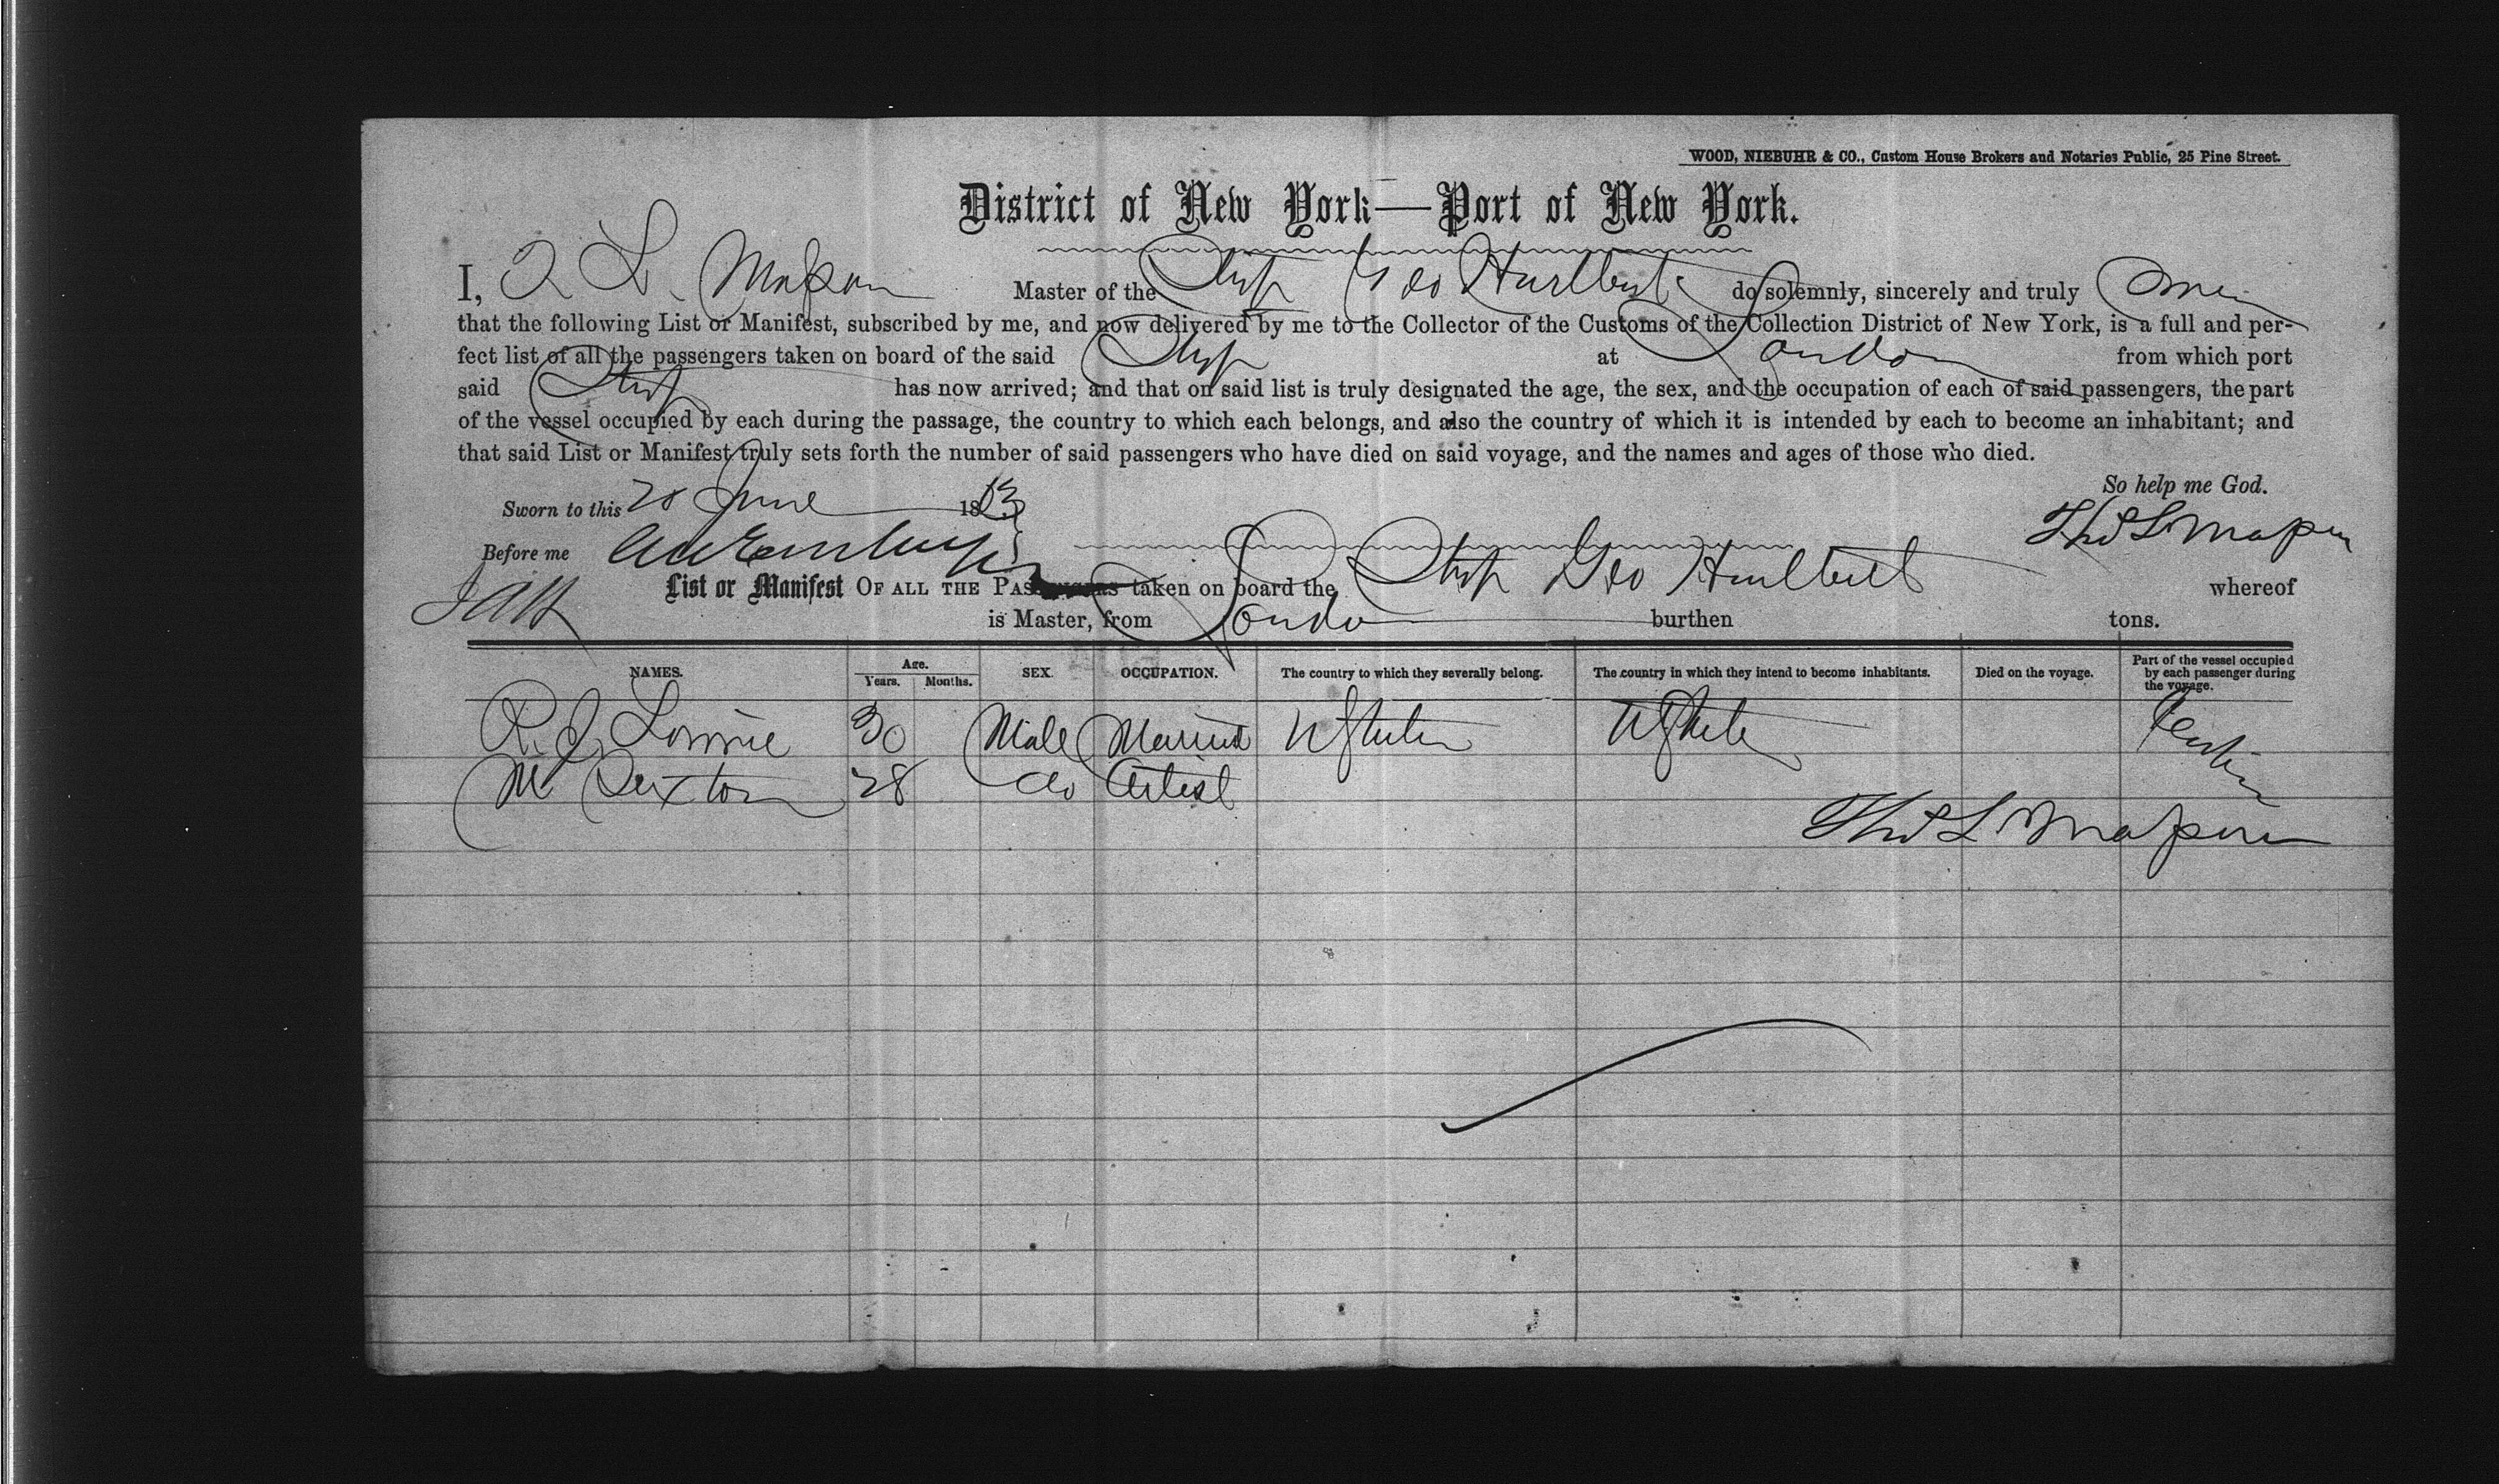 WOOD, NIEBUHR & CO., Custom House Brokers and Notaries Public, 25 Pine Street.
District of New York—Port of New York.
I, T L. Mason Master of the Ship Geo Hurlbut do solemnly, sincerely and truly swear
that the following List or Manifest, subscribed by me, and now delivered by me to the Collector of the Customs of the Collection District of New York, is a full and per-
fect list of all the passengers taken on board of the said Ship at London from which port
said Ship has now arrived; and that on said list is truly designated the age, the sex, and the occupation of each of said passengers, the part
of the vessel occupied by each during the passage, the country to which each belongs, and also the country of which it is intended by each to become an inhabitant; and
that said List or Manifest truly sets forth the number of said passengers who have died on said voyage, and the names and ages of those who died.
So help me God.
Sworn to this 28 June 18
Thos L Mason
Before me
List or Manifest OF ALL THE PASSENGERS taken on board the Ship Geo Hurlbut whereof
is Master, from London burthen tons.
NAMES. Age. Years. Months. SEX. OCCUPATION. The country to which they severally belong. The country in which they intend to become inhabitants. Died on the voyage. Part of the vessel occupied by each passenger during the voyage.
R. J. Lorrie 30 Male U States U States
M Sexton 28 do Artist
Thos L Mason